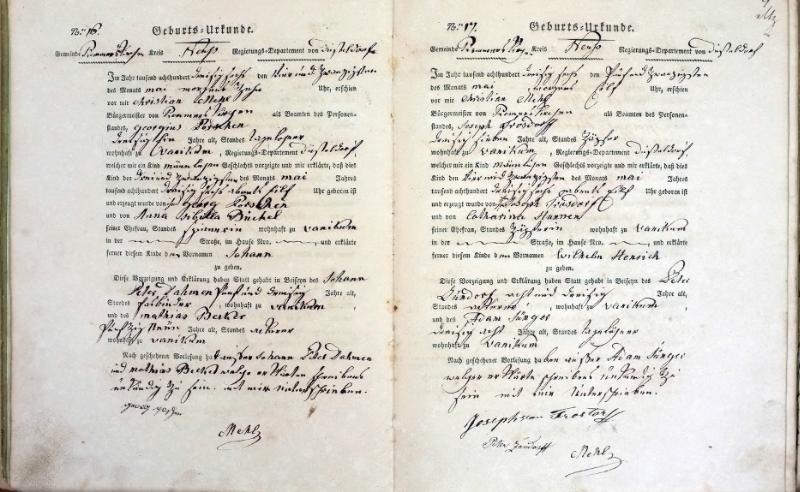 No. 16. Geburts-Urkunde.
Gemeinde Kreis Neuß Regierungs-Departement von Düsseldorf
Im Jahr tausend achthundert dreißig sechs den vier und zwanzigsten
des Monats mai morgens Uhr, erschien
vor mir Christian Mehl
Bürgermeister von als Beamten des Personen-
standes, Georgius
Jahre alt, Standes taglöhner
wohnhaft zu Vanikum, Regierungs-Departement Düsseldorf,
welcher mir ein Kind männlichen Geschlechts vorzeigte und mir erklärte, daß dies
Kind den drei und zwanzigsten des Monats mai Jahres
tausend achthundert dreißig sechs abends eilf Uhr geboren ist
und erzeugt wurde von Georg
und von Anna
seiner Ehefrau, Standes spinnerin wohnhaft zu Vanikum
in der Straße, im Hause Nro. , und erklärte
ferner diesem Kinde den Vornamen Johann
zu geben.
Diese Vorzeigung und Erklärung haben Statt gehabt in Beiseyn des Johann
Peter Dahmen fünf und dreißig Jahre alt,
Standes faßbinder, wohnhaft zu Vanikum,
und des mathias Becker
fünfzig neun Jahre alt, Standes ackerer
wohnhaft zu Vanikum
Nach geschehener Vorlesung haben außer Johann Peter Dahmen
und mathias Becker welche erklärten schreibens
unkündig zu sein mit mir unterschrieben.
georg
Mehl
No. 17. Geburts-Urkunde.
Gemeinde Kreis Neuß Regierungs-Departement von Düsseldorf
Im Jahr tausend achthundert dreißig sechs den fünf und zwanzigsten
des Monats mai morgens eilf Uhr, erschien
vor mir Christian Mehl
Bürgermeister von als Beamten des Personen-
standes, Joseph Frosdorf
dreißig sieben Jahre alt, Standes
wohnhaft zu Vanikum, Regierungs-Departement Düsseldorf,
welcher mir ein Kind männlichen Geschlechts vorzeigte und mir erklärte, daß dies
Kind den vier und zwanzigsten des Monats mai Jahres
tausend achthundert dreißig sechs abends eilf Uhr geboren ist
und erzeugt wurde von Joseph Frosdorf
und von Catharina Hannen
seiner Ehefrau, Standes wohnhaft zu Vanikum
in der Straße, im Hause Nro. , und erklärte
ferner diesem Kinde den Vornamen Wilhelm Henrich
zu geben.
Diese Vorzeigung und Erklärung haben Statt gehabt in Beiseyn des Peter
acht und dreißig Jahre alt,
Standes ackerer, wohnhaft zu Vanikum,
und des Adam Sünger
dreißig acht Jahre alt, Standes taglöhner
wohnhaft zu Vanikum
Nach geschehener Vorlesung haben außer Adam Sünger
welcher erklärte schreibens unkündig zu
sein mit mir unterschrieben.
Joseph
Peter
Mehl